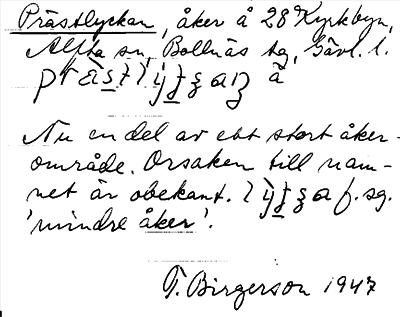 Prästlyckan, åker å 28 Kyrkbyn,
Alfta sn, Bollnäs tg, Gävl. l.
å
Nu en del av ett stort åker-
område. Orsaken till nam-
net är obekant. f. sg.
'mindre åker'.
T. Birgerson 1947